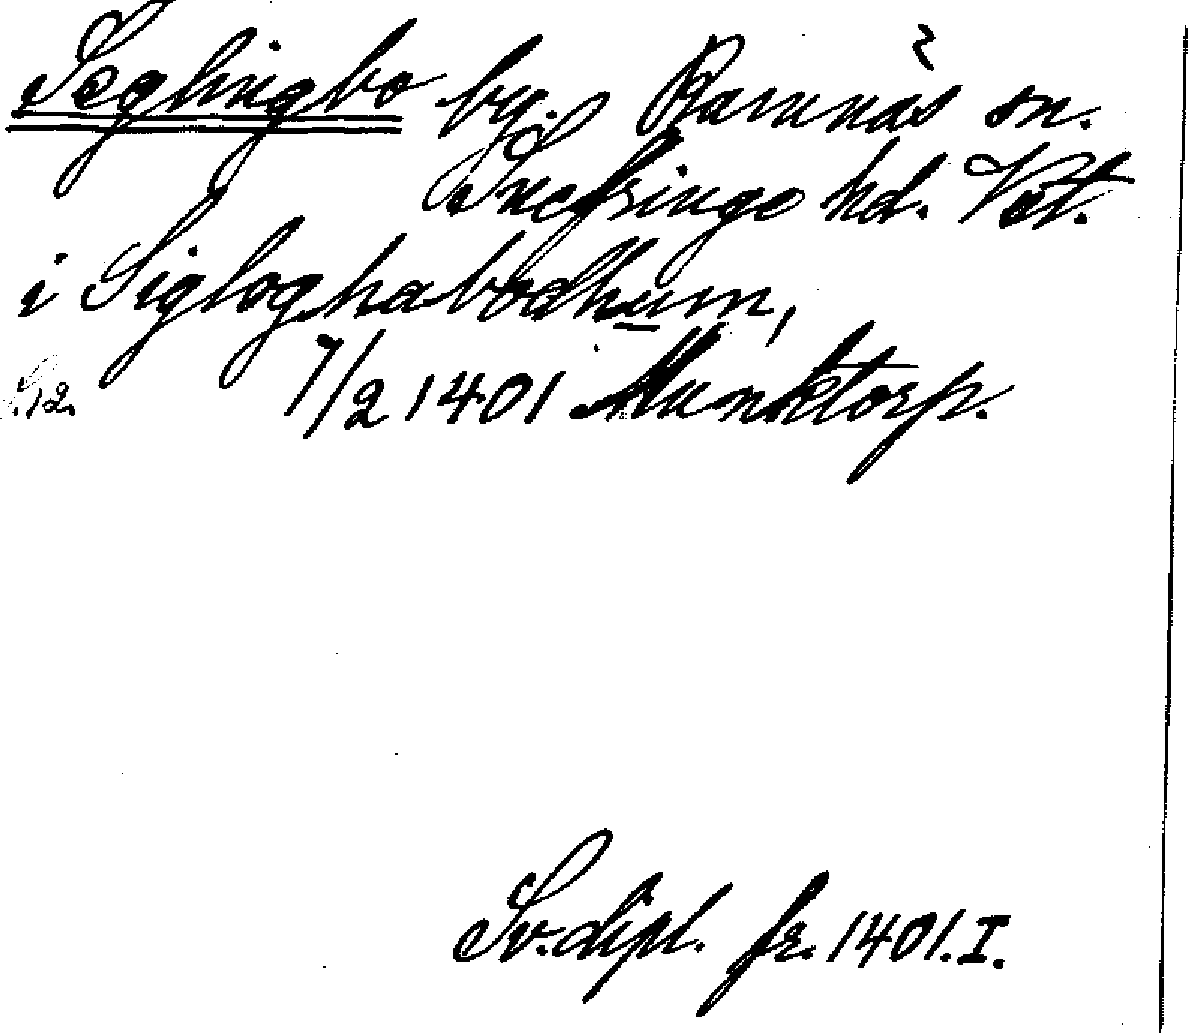 Seglingbo by. Ramnäs sn.
Snefringe hd. Vstl.
i Sigloghabodhum,
s. 12. 7/2 1401 Munktorp.
Sv. dipl. fr. 1401. I.